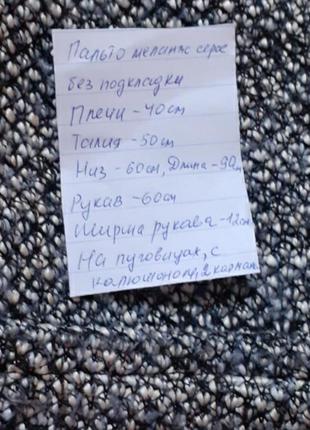 Пальто меланж серое
без подкладки
Плечи - 40см
Талия - 50см
Низ - 60см, Длина - 90см
Рукав - 60см
Ширина рукава - 12см
На пуговицах, с
капюшоном, 2 карман.